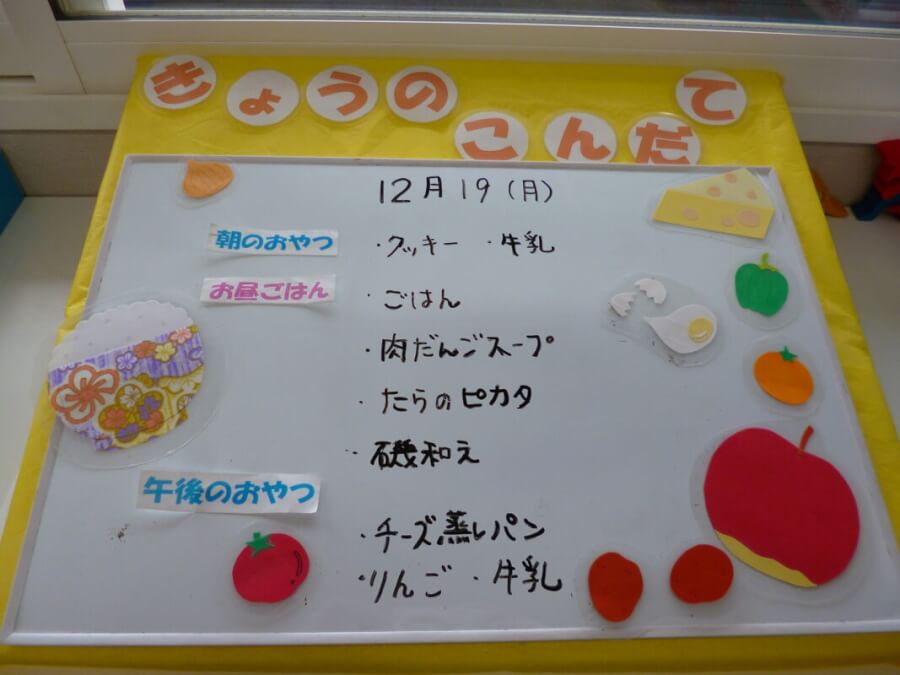 きょうの
こんだて
12月19(月)
朝のおやつ ・クッキー ・牛乳
お昼ごはん ・ごはん
・肉だんごスープ
・たらのピカタ
・磯和え
午後のおやつ
・チーズ蒸しパン
・りんご ・牛乳